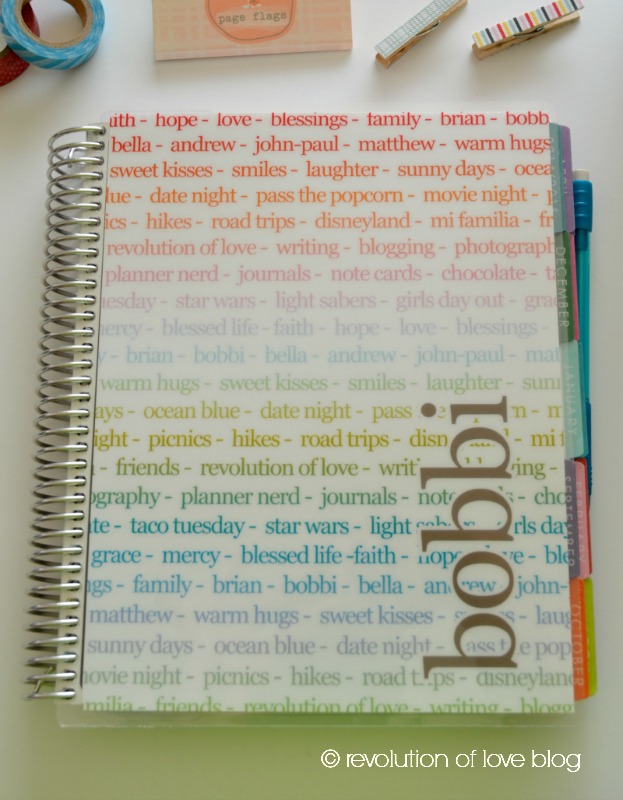 page flags
ith - hope - love - blessings - family - brian - bobb
bella - andrew - john-paul - matthew - warm hugs
sweet kisses - smiles - laughter - sunny days - ocea
lue - date night - pass the popcorn - movie night - p
ics - hikes - road trips - disneyland - mi familia - fr
revolution of love - writing - blogging - photograph
planner nerd - journals - note cards - chocolate - t
uesday - star wars - light sabers - girls day out - grac
mercy - blessed life -faith - hope - love - blessings -
y - brian - bobbi - bella - andrew - john-paul - mat
warm hugs - sweet kisses - smiles - laughter - sunn
ays - ocean blue - date night - pass - m
ight - picnics - hikes - road trips - disn - mi f
- friends - revolution of love - writ ing -
ography - planner nerd - journals - note - cho
ate - taco tuesday - star wars - light rls day
grace - mercy - blessed life -faith - hope - love - ble
ngs - family - brian - bobbi - bella - andrew - john-
matthew - warm hugs - sweet kisses - laug
sunny days - ocean blue - date night - pass the pop
movie night - picnics - hikes - road trips - disneyland
milia - friends - revolution of love - writing - blogg
bobbi
APRIL
DECEMBER
JANUARY
FEBRUARY
SEPTEMBER
OCTOBER
© revolution of love blog